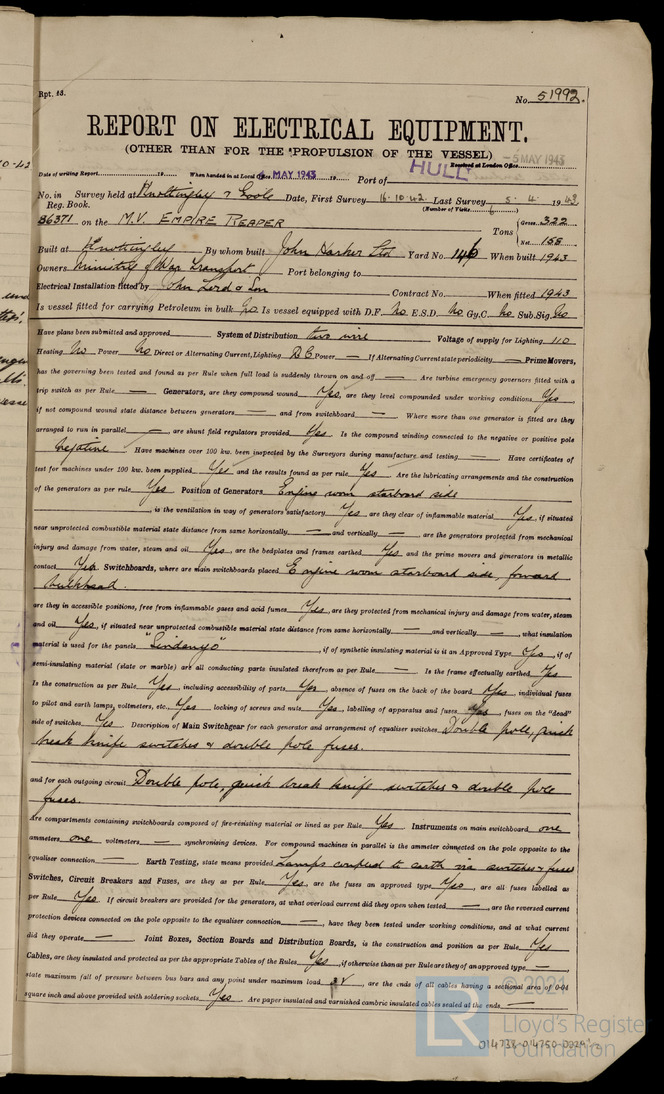 Rpt. 13.
No. 51992.
REPORT ON ELECTRICAL EQUIPMENT.
(OTHER THAN FOR THE PROPULSION OF THE VESSEL)
Received at London Office -5 MAY 1943
Date of writing Report 19 When handed in at Local Office MAY 1943 19 Port of HULL
No. in Reg. Book. Survey held at Knottingley & Goole Date, First Survey 16.10.42 Last Survey 5. 4. 1943
(Number of Visits 6)
36371 on the M.V. EMPIRE REAPER Tons Gross 322 Net 158
Built at Knottingley By whom built John Harker Ltd Yard No. 146 When built 1943
Owners Ministry of War Transport Port belonging to
Electrical Installation fitted by John Lord & Son Contract No. When fitted 1943
Is vessel fitted for carrying Petroleum in bulk No Is vessel equipped with D.F. No E.S.D. No Gy.C. No Sub.Sig. No
Have plans been submitted and approved System of Distribution two wire Voltage of supply for Lighting 110
Heating No Power No Direct or Alternating Current, Lighting D.C. Power — If Alternating Current state periodicity — Prime Movers,
has the governing been tested and found as per Rule when full load is suddenly thrown on and off — Are turbine emergency governors fitted with a
trip switch as per Rule — Generators, are they compound wound Yes, are they level compounded under working conditions Yes,
if not compound wound state distance between generators — and from switchboard — Where more than one generator is fitted are they
arranged to run in parallel —, are shunt field regulators provided Yes Is the compound winding connected to the negative or positive pole
Negative. Have machines over 100 kw. been inspected by the Surveyors during manufacture and testing — Have certificates of
test for machines under 100 kw. been supplied Yes and the results found as per rule Yes Are the lubricating arrangements and the construction
of the generators as per rule Yes Position of Generators Engine room starboard side
, is the ventilation in way of generators satisfactory Yes, are they clear of inflammable material Yes, if situated
near unprotected combustible material state distance from same horizontally — and vertically —, are the generators protected from mechanical
injury and damage from water, steam and oil Yes, are the bedplates and frames earthed Yes and the prime movers and generators in metallic
contact Yes Switchboards, where are main switchboards placed Engine room starboard side, forward
bulkhead.
are they in accessible positions, free from inflammable gases and acid fumes Yes, are they protected from mechanical injury and damage from water, steam
and oil Yes, if situated near unprotected combustible material state distance from same horizontally — and vertically —, what insulation
material is used for the panels "Sindanyo", if of synthetic insulating material is it an Approved Type Yes, if of
semi-insulating material (slate or marble) are all conducting parts insulated therefrom as per Rule — Is the frame effectually earthed Yes
Is the construction as per Rule Yes, including accessibility of parts Yes, absence of fuses on the back of the board Yes, individual fuses
to pilot and earth lamps, voltmeters, etc. Yes locking of screws and nuts Yes, labelling of apparatus and fuses Yes, fuses on the "dead"
side of switches Yes Description of Main Switchgear for each generator and arrangement of equaliser switches Double pole, quick
break knife switches & double pole fuses.
and for each outgoing circuit Double pole, quick break knife switches & double pole
fuses.
Are compartments containing switchboards composed of fire-resisting material or lined as per Rule Yes Instruments on main switchboard one
ammeters one voltmeters — synchronising devices. For compound machines in parallel is the ammeter connected on the pole opposite to the
equaliser connection — Earth Testing, state means provided Lamps coupled to earth via switches & fuses
Switches, Circuit Breakers and Fuses, are they as per Rule Yes, are the fuses an approved type Yes, are all fuses labelled as
per Rule Yes If circuit breakers are provided for the generators, at what overload current did they open when tested —, are the reversed current
protection devices connected on the pole opposite to the equaliser connection —, have they been tested under working conditions, and at what current
did they operate — Joint Boxes, Section Boards and Distribution Boards, is the construction and position as per Rule Yes
Cables, are they insulated and protected as per the appropriate Tables of the Rules Yes, if otherwise than as per Rule are they of an approved type —
state maximum fall of pressure between bus bars and any point under maximum load 3V, are the ends of all cables having a sectional area of 0·04
square inch and above provided with soldering sockets Yes Are paper insulated and varnished cambric insulated cables sealed at the ends —
© 2021
Lloyd's Register
Foundation